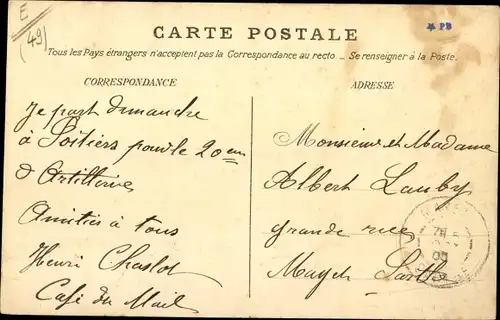 E
(49)
CARTE POSTALE
★ PB
Tous les Pays étrangers n'acceptent pas la Correspondance au recto. _ Se renseigner à la Poste.
CORRESPONDANCE
Je part dimanche
à Poitiers pour le 20em
d'Artillerie
Amitiés à tous
Henri Chaslot
Café du Mail
ADRESSE
Monsieur et Madame
Albert Lauby
grande rue
Mayet Sarthe